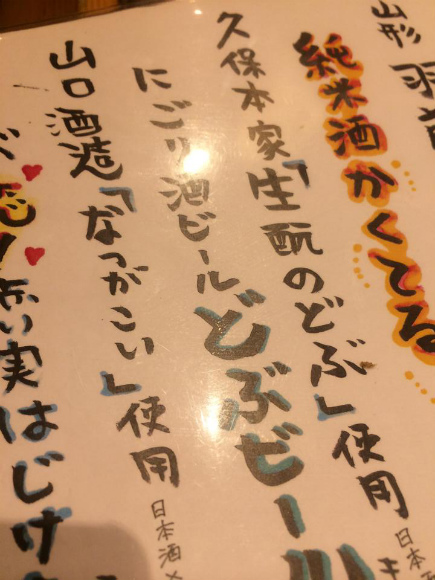 山形
純米酒かくてる
久保本家「生酛のどぶ」使用
日本酒
にごり酒ビールどぶビール
山口酒造「なつがこい」使用
日本酒
恋!
赤い実はじけ